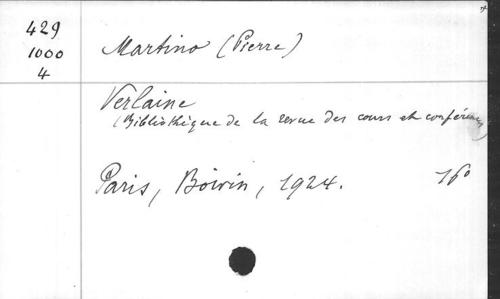 429
1000
4
Martino (Pierre)
Verlaine
(Bibliothèque de la revue des cours et conférences)
Paris, Boivin, 1924. 16°